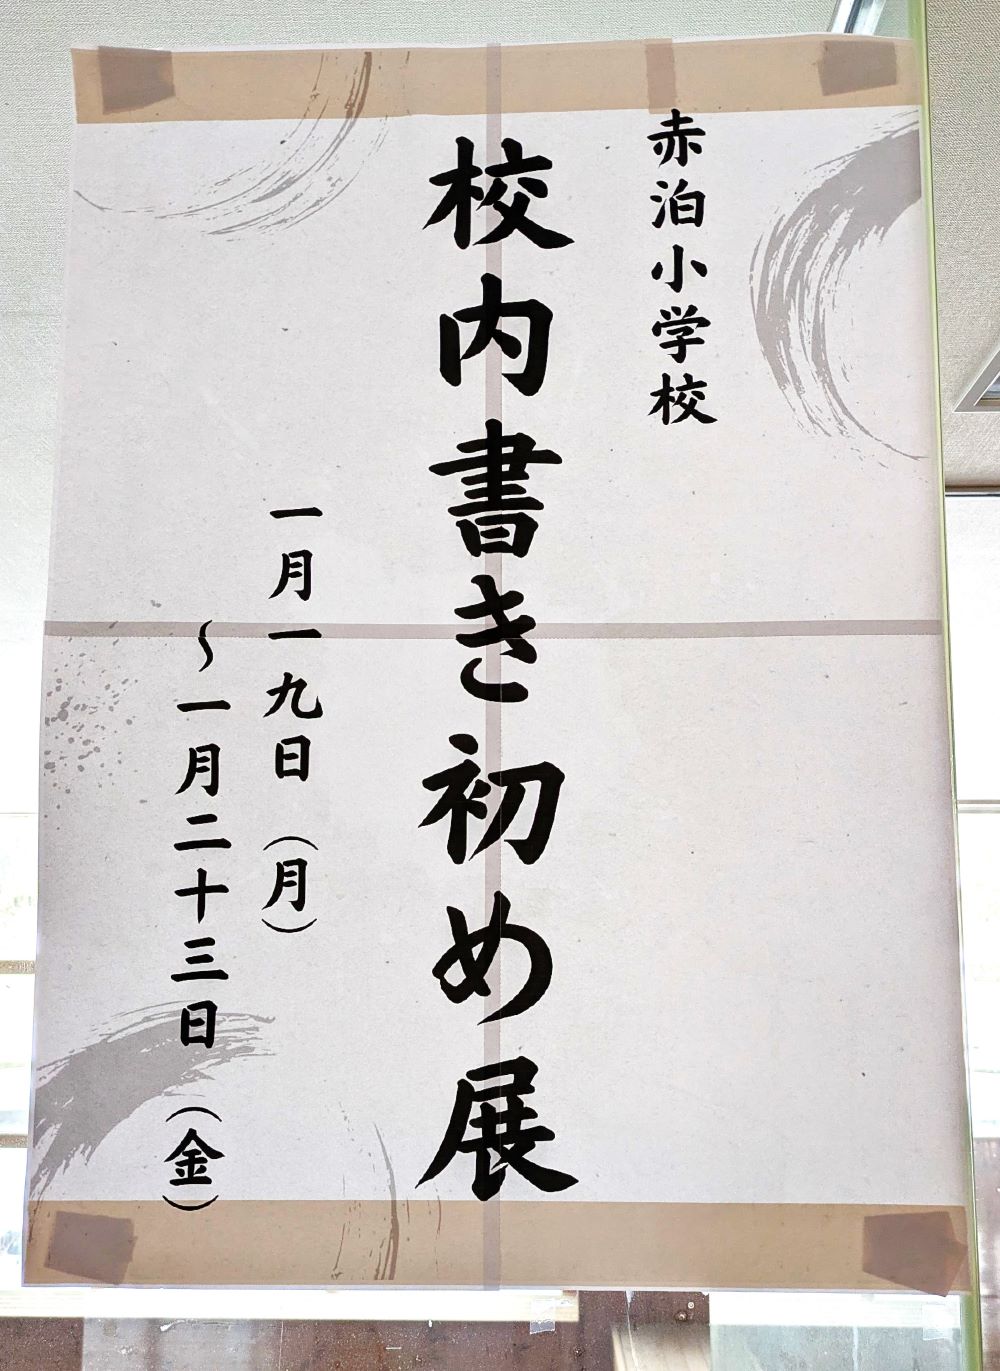 赤泊小学校
校内書き初め展
一月一九日（月）
～一月二十三日（金）